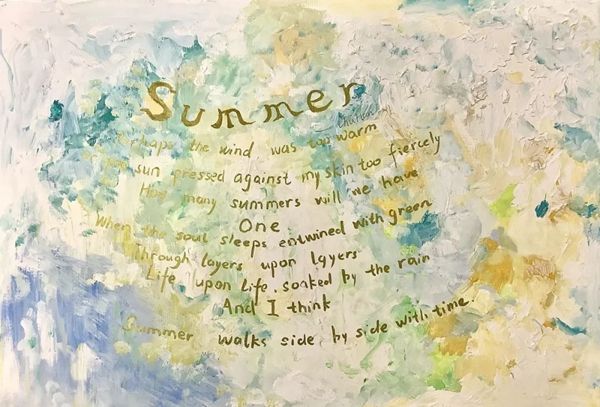 Summer
Perhaps the wind was too warm
sun pressed against my skin too fiercely
How many summers will we have
One
When the soul sleeps entwined with green
Through layers upon layers
Life upon life, soaked by the rain
And I think
Summer walks side by side with time